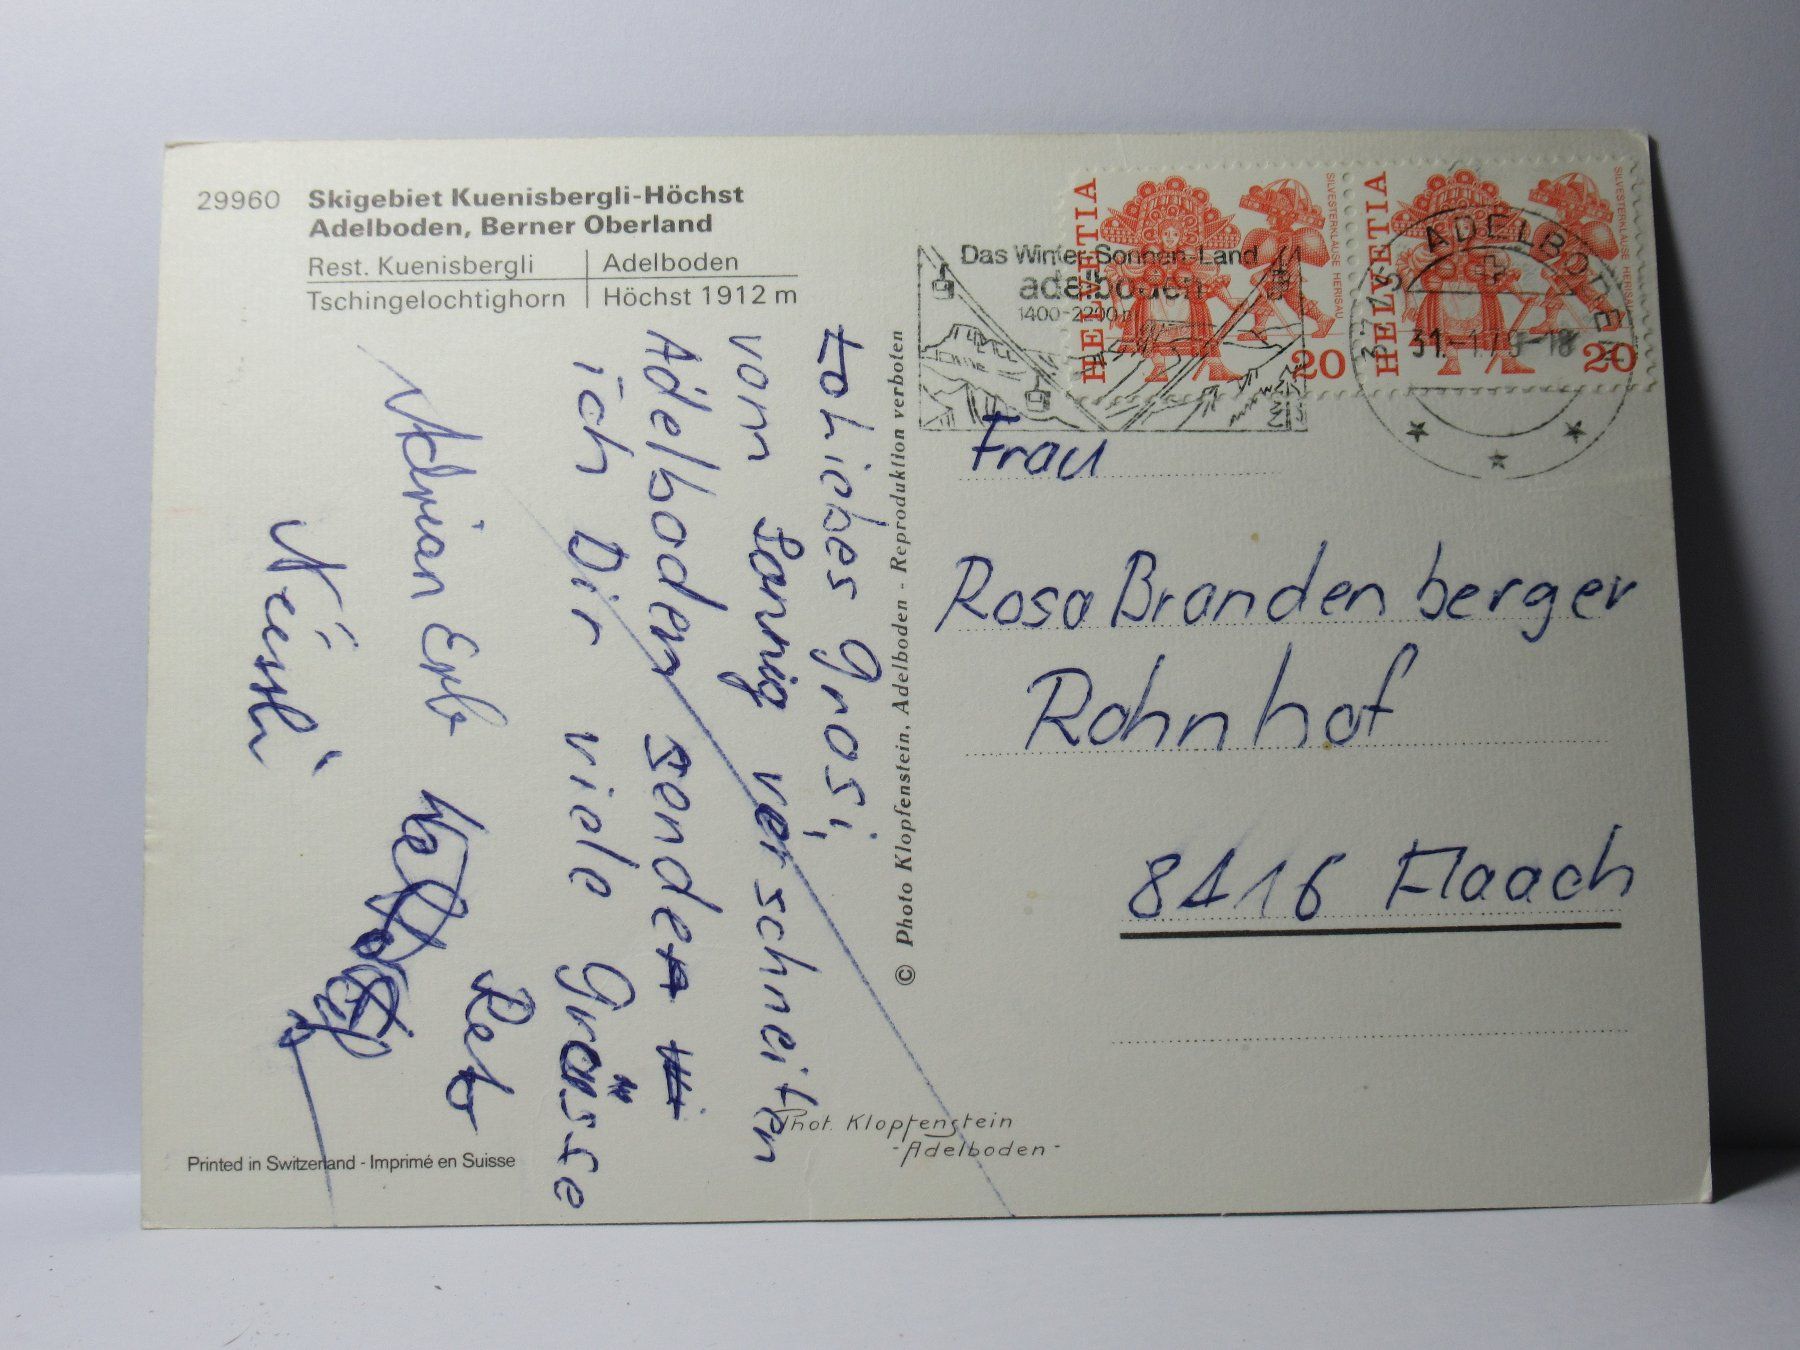 29960 Skigebiet Kuenisbergli-Höchst
Adelboden, Berner Oberland
Rest. Kuenisbergli | Adelboden
Tschingelochtighorn | Höchst 1912 m
Liebes Grosi,
vom sonnig verschneiten
Adelboden sende
ich Dir viele Grüsse
Adrian Erb Reto
© Photo Klopfenstein, Adelboden - Reproduktion verboten
Das Winter-Sonnen-Land
adelboden
1400-2200 m
HELVETIA
SILVESTERKLÄUSE HERISAU
20
HELVETIA
SILVESTERKLÄUSE HERISAU
20
ADELBODEN
31.-1.79-18
Frau
Rosa Brandenberger
Rohnhof
8416 Flaach
Phot. Klopfenstein
-Adelboden-
Printed in Switzerland - Imprimé en Suisse